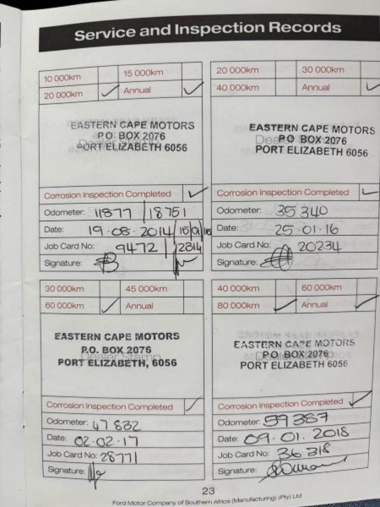 Service and Inspection Records
10 000km 15 000km
20 000km Annual
EASTERN CAPE MOTORS
P.O. BOX 2076
PORT ELIZABETH 6056
Corrosion Inspection Completed
Odometer: 11877 18751
Date: 19-08-2014
Job Card No: 9472 2814
Signature:
20 000km 30 000km
40 000km Annual
EASTERN CAPE MOTORS
P.O BOX 2076
PORT ELIZABETH 6056
Corrosion Inspection Completed
Odometer: 35 340
Date: 25-01-16
Job Card No: 20234
Signature:
30 000km 45 000km
60 000km Annual
EASTERN CAPE MOTORS
P.O. BOX 2076
PORT ELIZABETH, 6056
Corrosion Inspection Completed
Odometer: 47832
Date: 02-02-17
Job Card No: 28771
Signature:
40 000km 60 000km
80 000km Annual
EASTERN CAPE MOTORS
P.O BOX 2076
PORT ELIZABETH 6056
Corrosion Inspection Completed
Odometer: 59387
Date: 09.01.2018
Job Card No: 36318
Signature:
23
Ford Motor Company of Southern Africa (Manufacturing) (Pty) Ltd